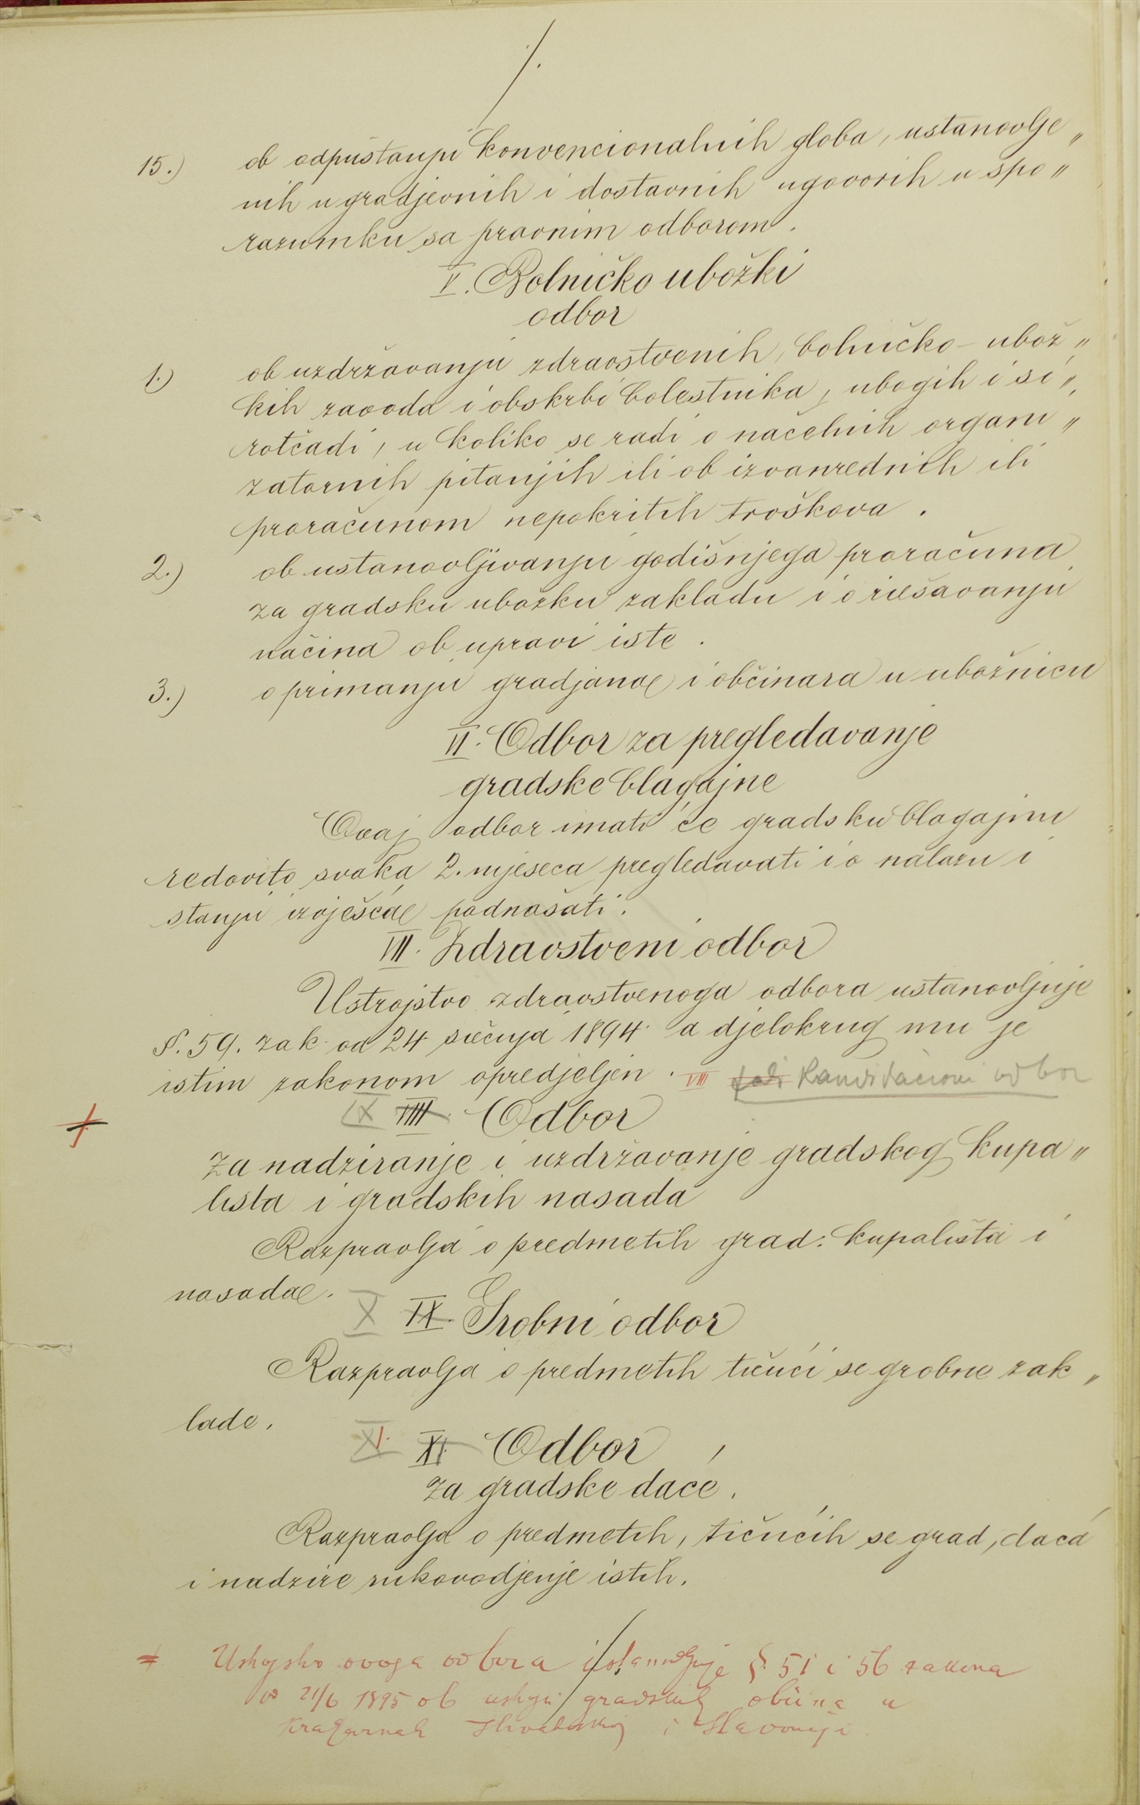 15.) ob odpuštanju konvencionalnih globa, ustanovlje„
nih u gradjevnih i dostavnih ugovorih u spo„
razumku sa pravnim odborom.
V. Bolničko ubožki
odbor
1.) ob uzdržavanju zdravstvenih, bolničko-ubož„
kih zavoda i obskrbi bolestnika, ubogih i si„
ročadi, u koliko se radi o načelnih organi„
zatornih pitanjih ili ob izvanrednih ili
proračunom nepokritih troškova.
2.) ob ustanovljivanju godišnjega proračuna
za gradsku ubožku zakladu i o riešavanju
načina ob upravi iste.
3.) o primanju gradjana i občinara u ubožnicu
VI. Odbor za pregledavanje
gradske blagajne
Ovaj odbor imati će gradsku blagajnu
redovito svaka 2. mjeseca pregledavati i o nalazu i
stanju izvješća podnašati.
VII. Zdravstveni odbor
Ustrojstvo zdravstvenoga odbora ustanovljuje
§. 59. zak. od 24 siečnja 1894. a djelokrug mu je
istim zakonom opredjeljen. VIII Kandidacioni odbor
IX VIII. Odbor
za nadziranje i uzdržavanje gradskog kupa„
lišta i gradskih nasada
Razpravlja o predmetih grad. kupališta i
nasada.
X IX. Grobni odbor
Razpravlja o predmetih tičući se grobne zak„
lade.
XI. XI. Odbor
za gradske daće.
Razpravlja o predmetih, tičućih se grad, daća
i nadzire rukovodjenje istih.
Ustrojstvo ovoga odbora ustanovljuje § 51 i 56 zakona
od 21/6 1895 ob ustroju gradskih obćina u
kraljevinah Hrvatskoj i Slavoniji.